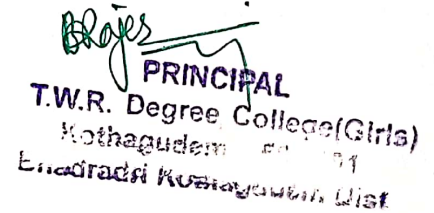 BRajes
PRINCIPAL
T.W.R. Degree College(Girls)
Kothagudem
Bhadradri Kothagudem Dist